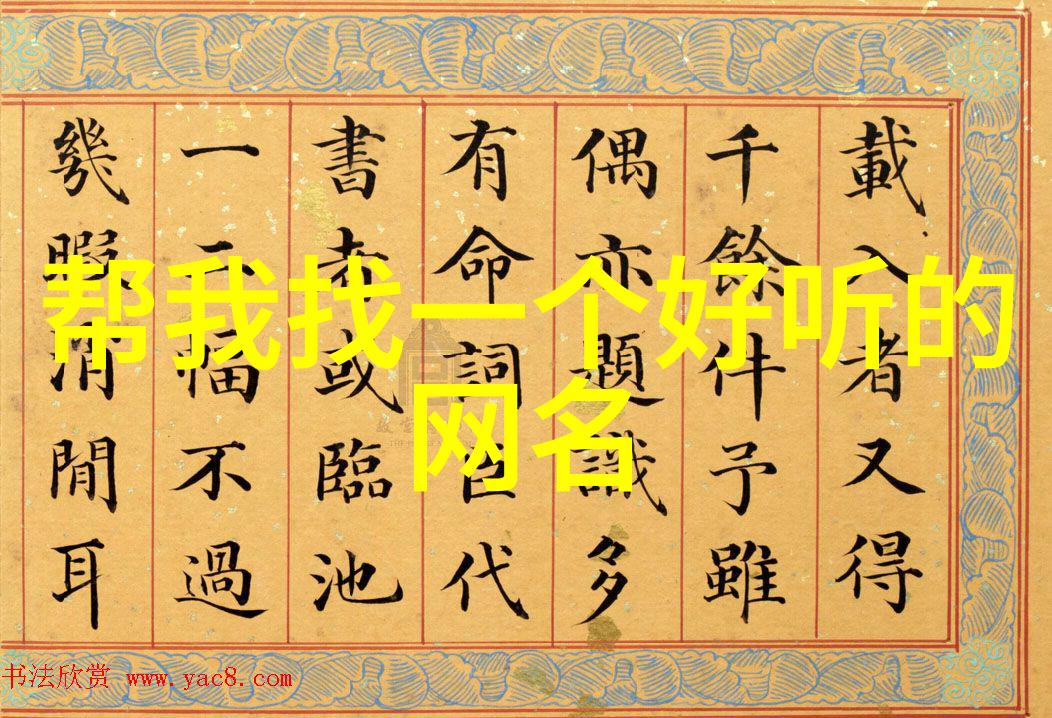 載入者又得
千餘件予雖
偶亦題識多
有命詞臣代
書者或臨池
一二幅不過
幾暇消閒耳
帮我找一个好听的
网名
书法欣赏 www.yac8.com